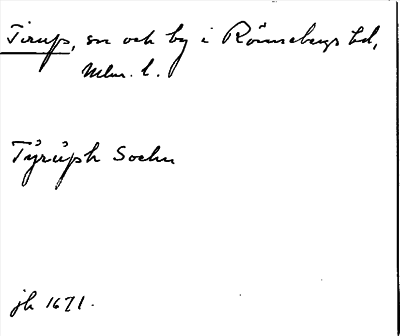 Tirup, sn och by i Rönnebergs hd,
Mlm. l.
Tÿrüph Sochn
jb 1671.